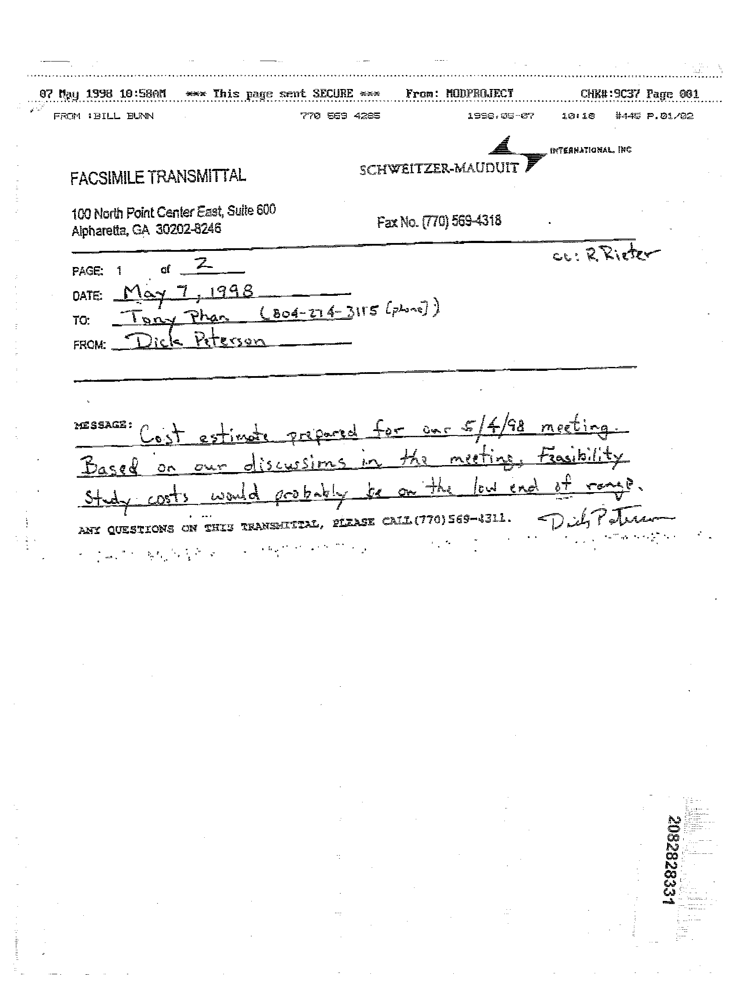 07 May 1998 10:58AM *** This page sent SECURE *** From: MODPROJECT CHK#:9C37 Page 001
FROM :BILL BUNN 770 569 4285 1998.05-07 10:18 #445 P.01/02
INTERNATIONAL, INC
SCHWEITZER-MAUDUIT
FACSIMILE TRANSMITTAL
100 North Point Center East, Suite 600
Alpharetta, GA 30202-8246
Fax No. (770) 569-4318
cc: R. Rieter
PAGE: 1 of 2
DATE: May 7, 1998
TO: Tony Phan (804-274-3115 [phone])
FROM: Dick Peterson
MESSAGE: Cost estimate prepared for our 5/4/98 meeting.
Based on our discussions in the meeting, Feasibility
Study costs would probably be on the low end of range.
ANY QUESTIONS ON THIS TRANSMITTAL, PLEASE CALL (770) 569-4311. Dick Peterson
2082828331